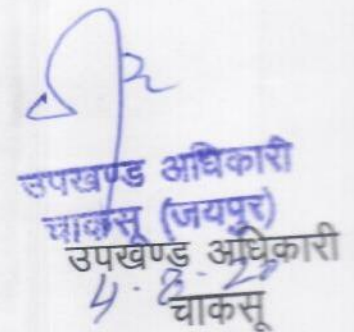 उपखण्ड अधिकारी
चाकसू (जयपुर)
उपखण्ड अधिकारी
4.8.20
चाकसू